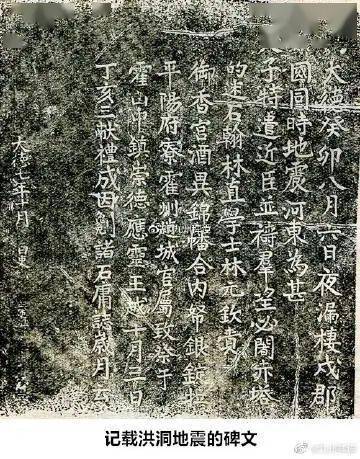 大德癸卯八月六日夜漏棲戍郡
國同時地震河東為甚
子特遣近臣並禱羣望必闍赤塔
的迷石翰林直學士林元欽賫
御香宮酒異錦幡合內帑銀錠
平陽府寮霍州趙城官屬致祭于
霍山中鎮崇德應靈王越十月三日
丁亥三獻禮成因勒諸石庸誌歲月云
大德七年十月 日
记载洪洞地震的碑文